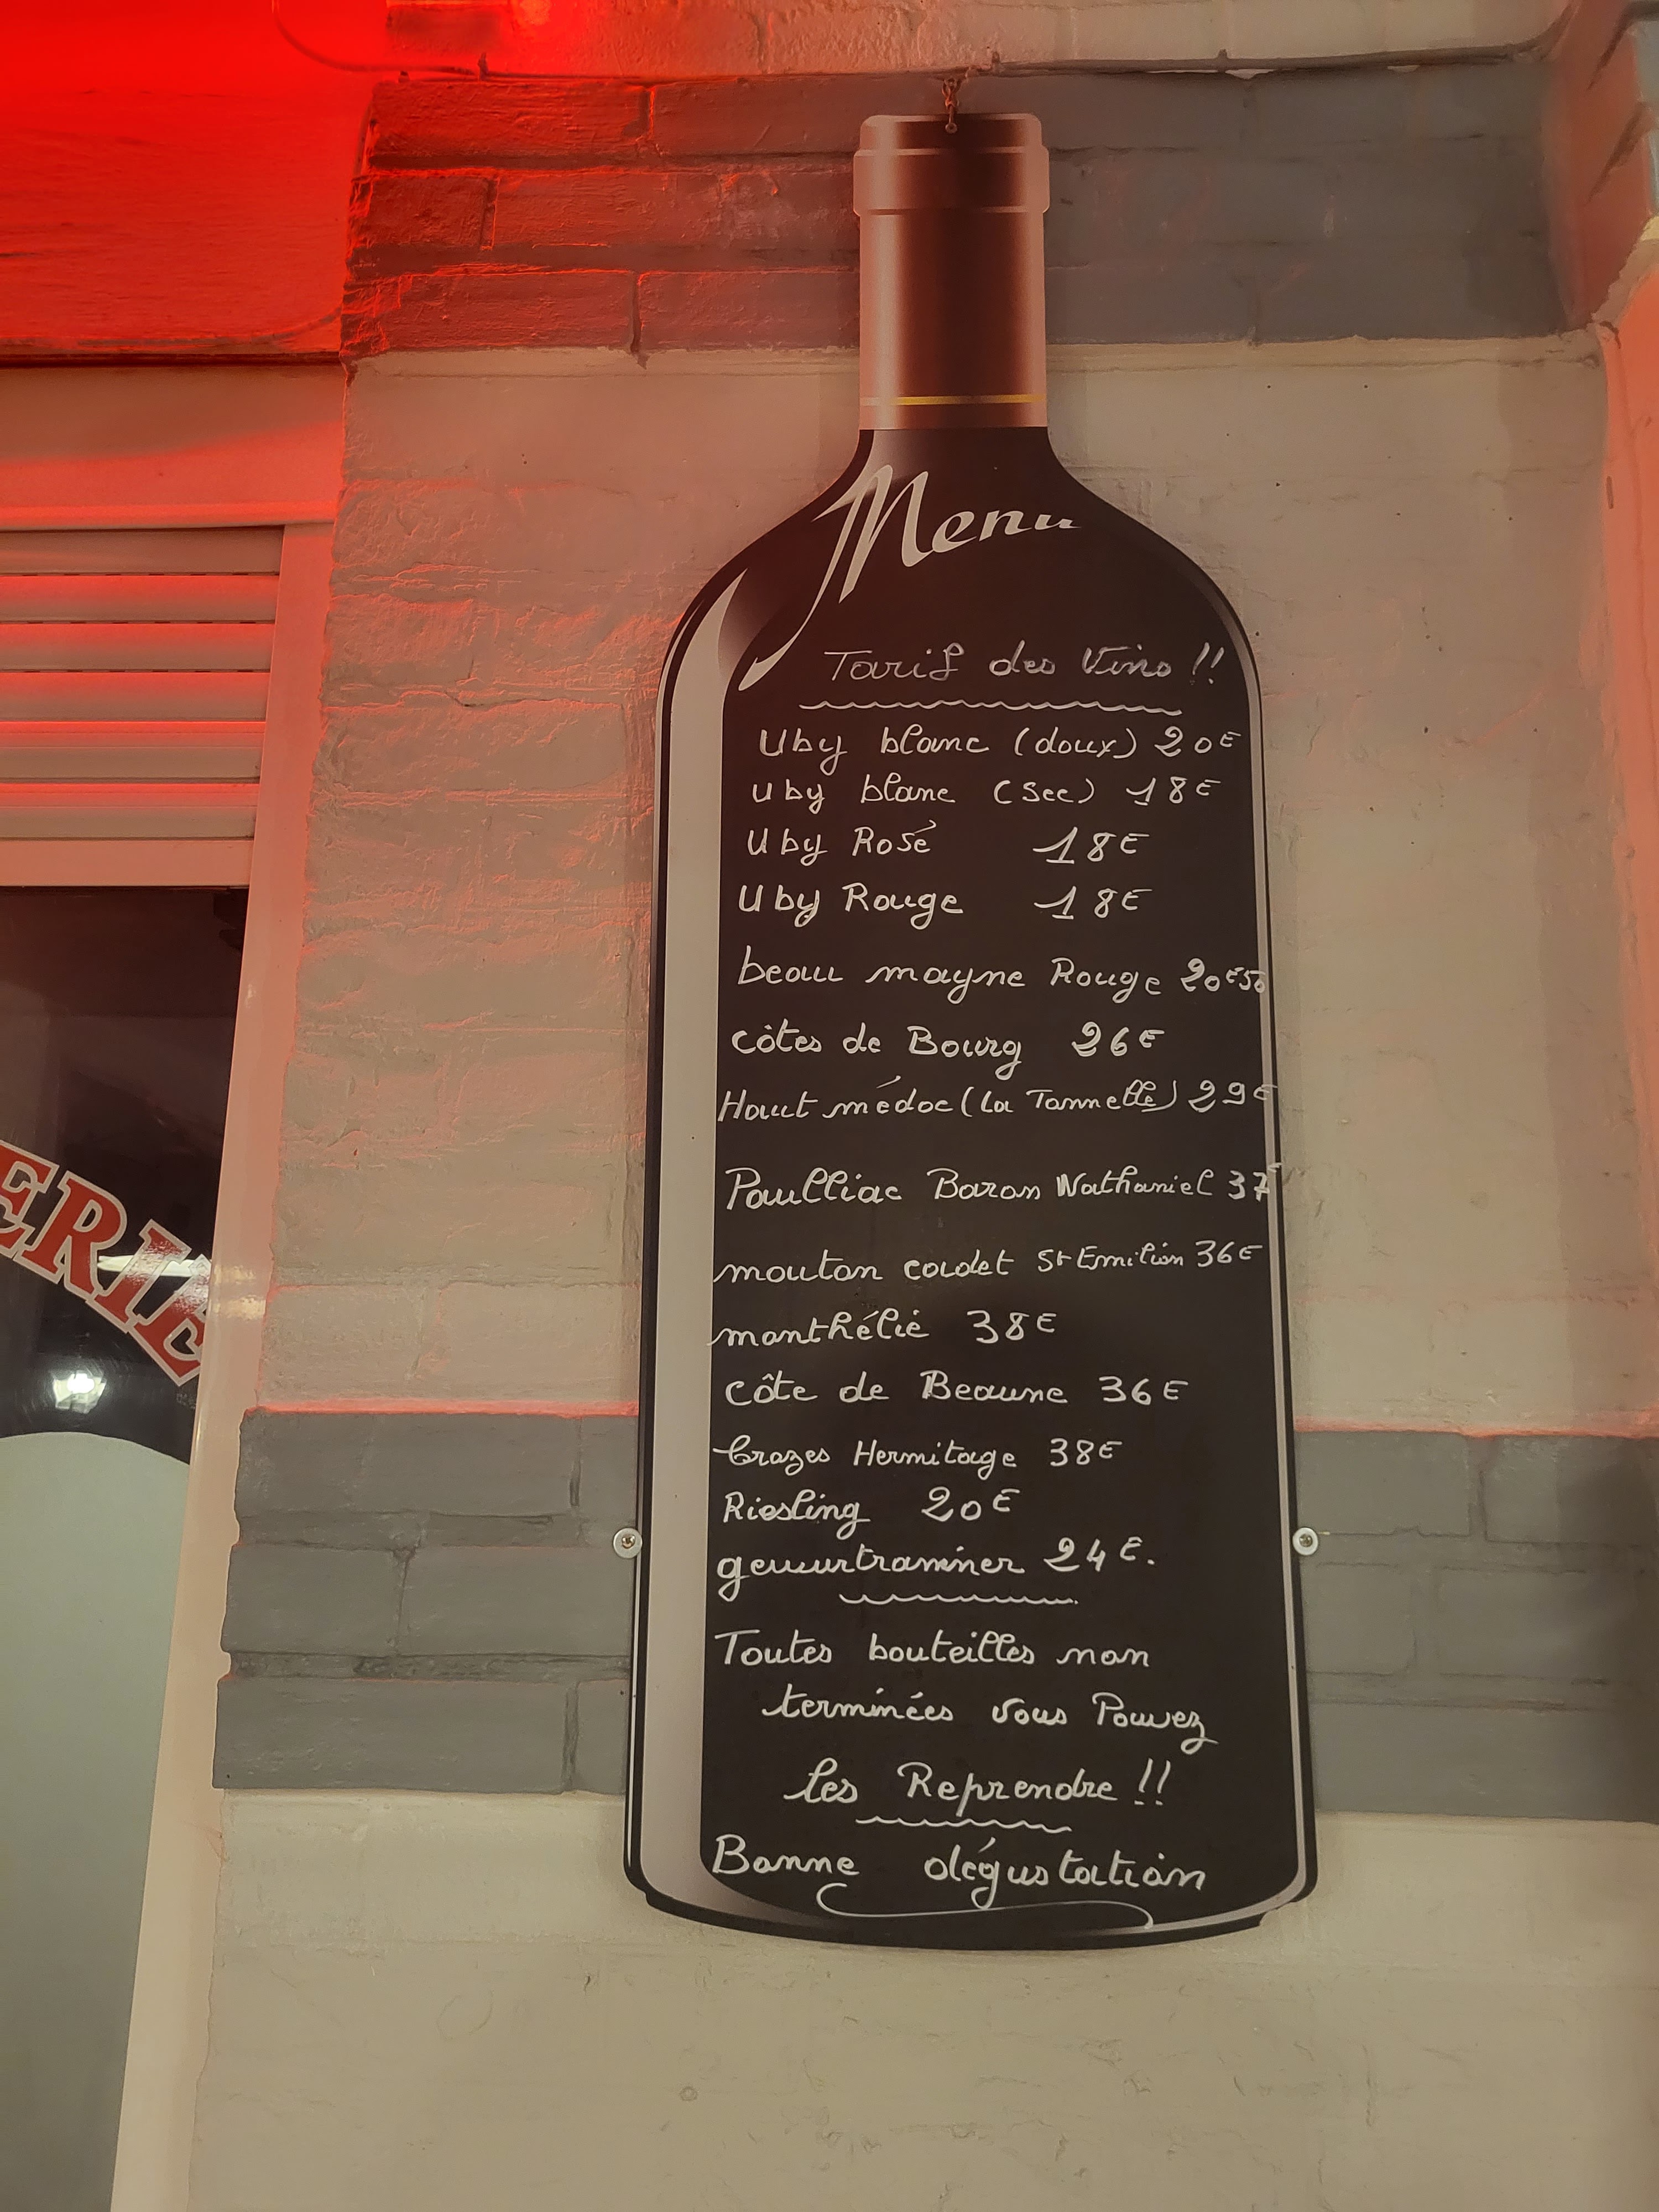 Menu
Tarif des Vins !!
Uby blanc (doux) 20€
Uby blanc (sec) 18€
Uby Rosé 18€
Uby Rouge 18€
beau mayne Rouge 20€50
côtes de Bourg 26€
Haut médoc (la Tannelle) 29€
Paulliac Baron Nathaniel 37€
mouton cadet St Emilion 36€
monthélie 38€
côte de Beaune 36€
Crozes Hermitage 38€
Riesling 20€
gewurtraminer 24€.
Toutes bouteilles non
terminées vous Pouvez
les Reprendre !!
Bonne dégustation
ERIE